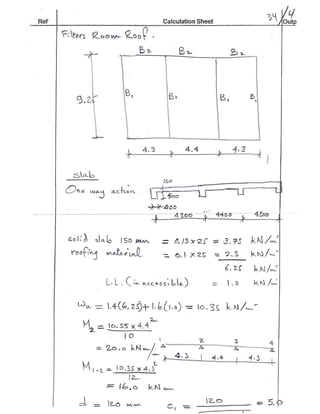 34/4
Ref Calculation Sheet Outp
Filters Room Roof.
B2 B2 B2
9.25 B1 B1 B1 B1
4.3 4.4 4.3
slab
One way action
150
500
400
4300 4400 4300
solid slab 150 mm = 0.15x25 = 3.75 kN/m²
roofing material = 0.1 x25 = 2.5 kN/m²
6.25 kN/m²
L.L. (inaccessible) = 1.0 kN/m²
Wu = 1.4(6.25)+1.6(1.0) = 10.35 kN/m²
M2 = 10.35 x 4.4²
10
= 20.0 kNm/
1 2 3 4
4.3 4.4 4.3
M1-2 = 10.35 x 4.3²
12
= 16.0 kNm
d = 120 mm C1 = 120 = 5.0